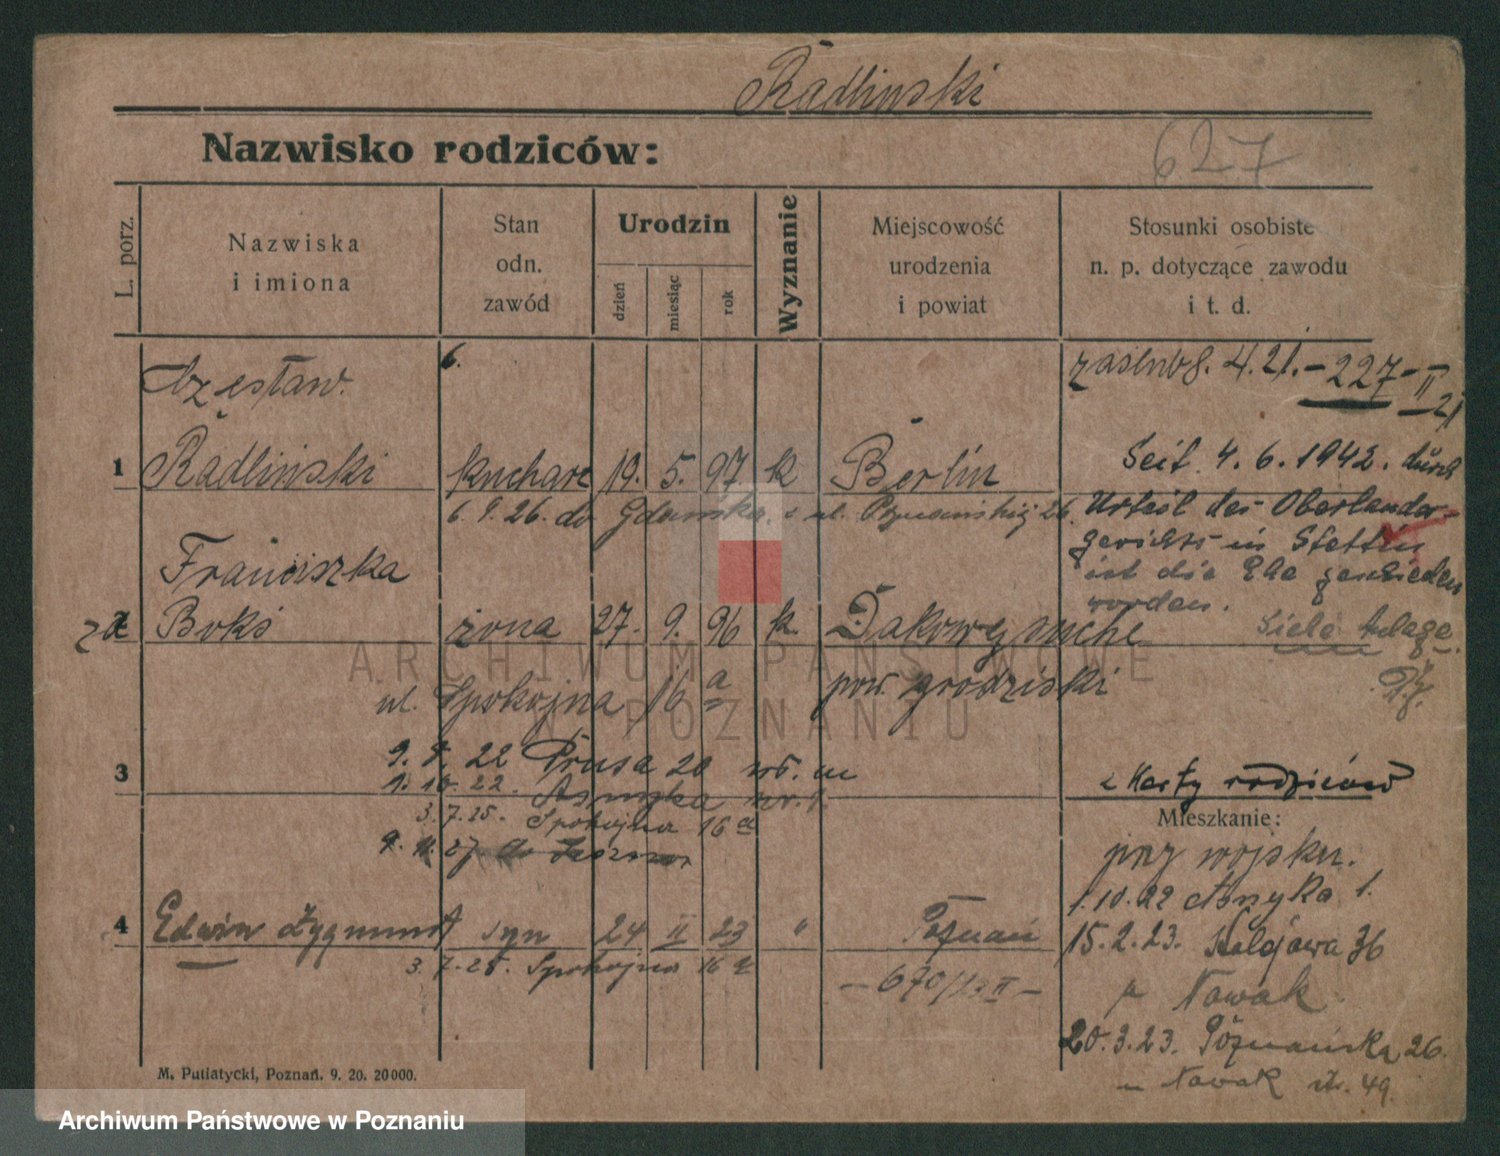 Radliński
Nazwisko rodziców:
627
L. porz.
Nazwiska
i imiona
Stan
odn.
zawód
Urodzin
dzień
miesiąc
rok
Wyznanie
Miejscowość
urodzenia
i powiat
Stosunki osobiste
n. p. dotyczące zawodu
i t. d.
Czesław
zaślub. 4.21. - 227 - II
21
1 Radliński kucharz 19. 5. 97 k Berlin
Seit 4.6.1942. durch
6.9.26. do Gdańska, ul. Poznańskiej 26.
Urteil des Oberlandes-
gerichts in Stettin
ist die Ehe geschieden
worden.
Franciszka
2 Boks żona 27. 9. 96 k. Dakowy suche
Siehe Anlage
ul. Spokojna 16 a
pow. grodziski
3
9. 8. 22 Prusa 20
1. 10. 22. Asnyka nr. 1
3.7.25. Spokojna 16 a
9. 11. 27 do
z Karty rodziców
Mieszkanie:
przy wojsku.
1.10.22 Asnyka 1.
4 Edwin Zygmunt syn 24 II 23 " Poznań
15.2.23. Kolejowa 36
3.7.25. Spokojna 16 a
- 670/23 II -
p. Nowak.
20.3.23. Poznańska 26.
Nowak m. 49.
M. Putiatycki, Poznań. 9. 20. 20000.
ARCHIWUM PAŃSTWOWE
W POZNANIU
Archiwum Państwowe w Poznaniu